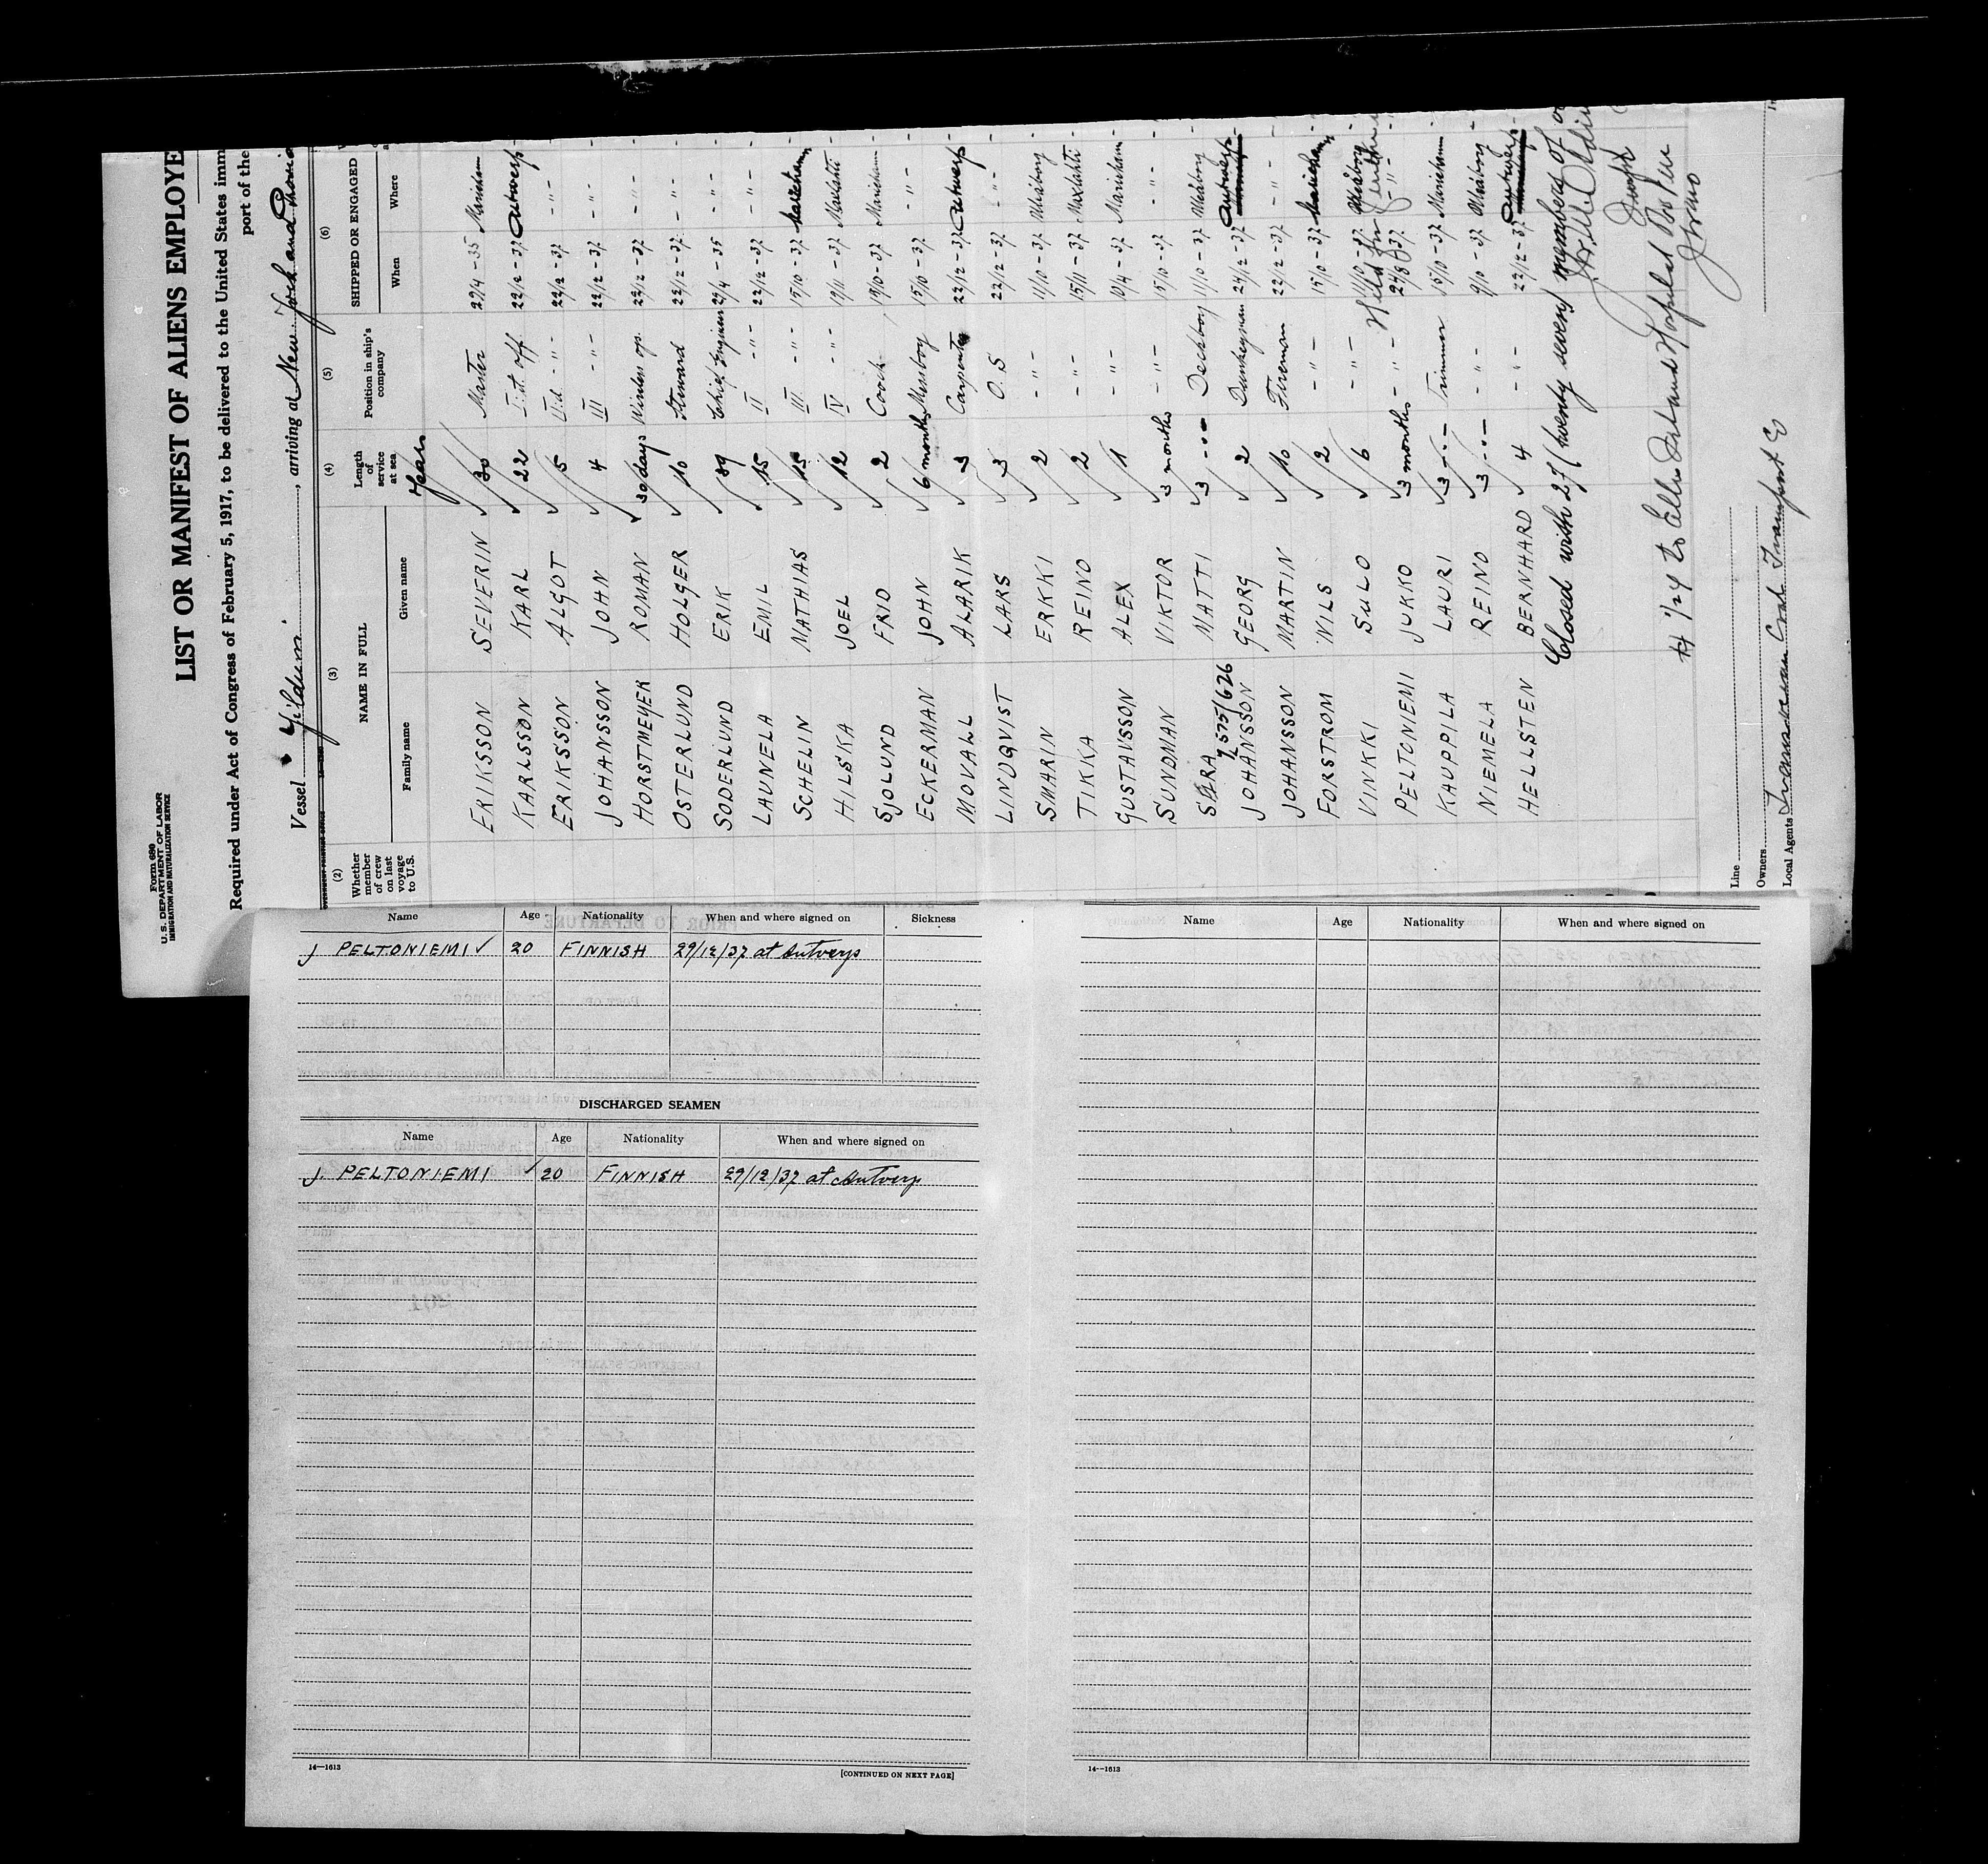 Form 680
U. S. DEPARTMENT OF LABOR
IMMIGRATION AND NATURALIZATION SERVICE
LIST OR MANIFEST OF ALIENS EMPLOYE
Required under Act of Congress of February 5, 1917, to be delivered to the United States imm
port of the
Vessel Yildum, arriving at New York and
(2) (3) (4) (5) (6)
Whether member of crew on last voyage to U.S. NAME IN FULL Length of service at sea Position in ship's company SHIPPED OR ENGAGED
Family name Given name When Where
Years
ERIKSSON SEVERIN 30 Master 29/4-35 Mariehamn
KARLSSON KARL 22 I:st off. 22/12-37 Antwerp
ERIKSSON ALGOT 5 II:d -"- 22/12-37 -"-
JOHANSSON JOHN 4 III -"- 22/12-37 -"-
HORSTMEYER ROMAN 30 days Wireless op. 22/12-37 -"-
OSTERLUND HOLGER 10 Steward 22/12-37 -"-
SODERLUND ERIK 39 Chief Engineer 29/4-35 -"-
LAUNELA EMIL 15 II -"- 22/12-37 -"-
SCHELIN NATHIAS 15 III -"- 15/10-37
HILSKA JOEL 12 IV -"- 19/11-37
SJOLUND FRID 2 Coock 15/10-37 Mariehamn
ECKERMAN JOHN 6 months Messboy 15/10-37 -"-
MOVALL ALARIK 3 Carpenter 22/12-37 Antwerp
LINDQVIST LARS 3 O.S 22/12-37 -"-
SMARIN ERKKI 2 -"- 11/10-37 Uleåborg
TIKKA REINO 2 -"- 15/11-37
GUSTAVSSON ALEX 1 -"- 10/4-37 Mariehamn
SUNDMAN VIKTOR 3 months -"- 15/10-37 -"-
SÄRA MATTI 3 -"- Deckboy 11/10-37 Uleåborg
7 575/626
JOHANSSON GEORG 2 Dunkeyman 22/12-37 Antwerp
JOHANSSON MARTIN 10 Fireman 22/12-37 -"-
FORSTROM NILS 2 -"- 15/10-37 Mariehamn
VINKKI SULO 6 -"- 11/10-37 Uleåborg
Held for
PELTONIEMI JUKKO 3 months -"- -"-
KAUPPILA LAURI 3 -"- Trimmer 15/10-37 Mariehamn
NIEMELA REINO 3 -"- -"- 9/10-37 Uleåborg
HELLSTEN BERNHARD 4 -"- 22/12-37 Antwerp
Closed with 27 (twenty seven) members of
1/24 to Ellis Island Hospital
Line
Owners
Local Agents Transoceanic
Name Age Nationality When and where signed on Sickness
J PELTONIEMI ✓ 20 FINNISH 29/12/37 at Antwerp
DISCHARGED SEAMEN
Name Age Nationality When and where signed on
J. PELTONIEMI ✓ 20 FINNISH 29/12/37 at Antwerp
14—1613
[CONTINUED ON NEXT PAGE]
Name Age Nationality When and where signed on
14—1613